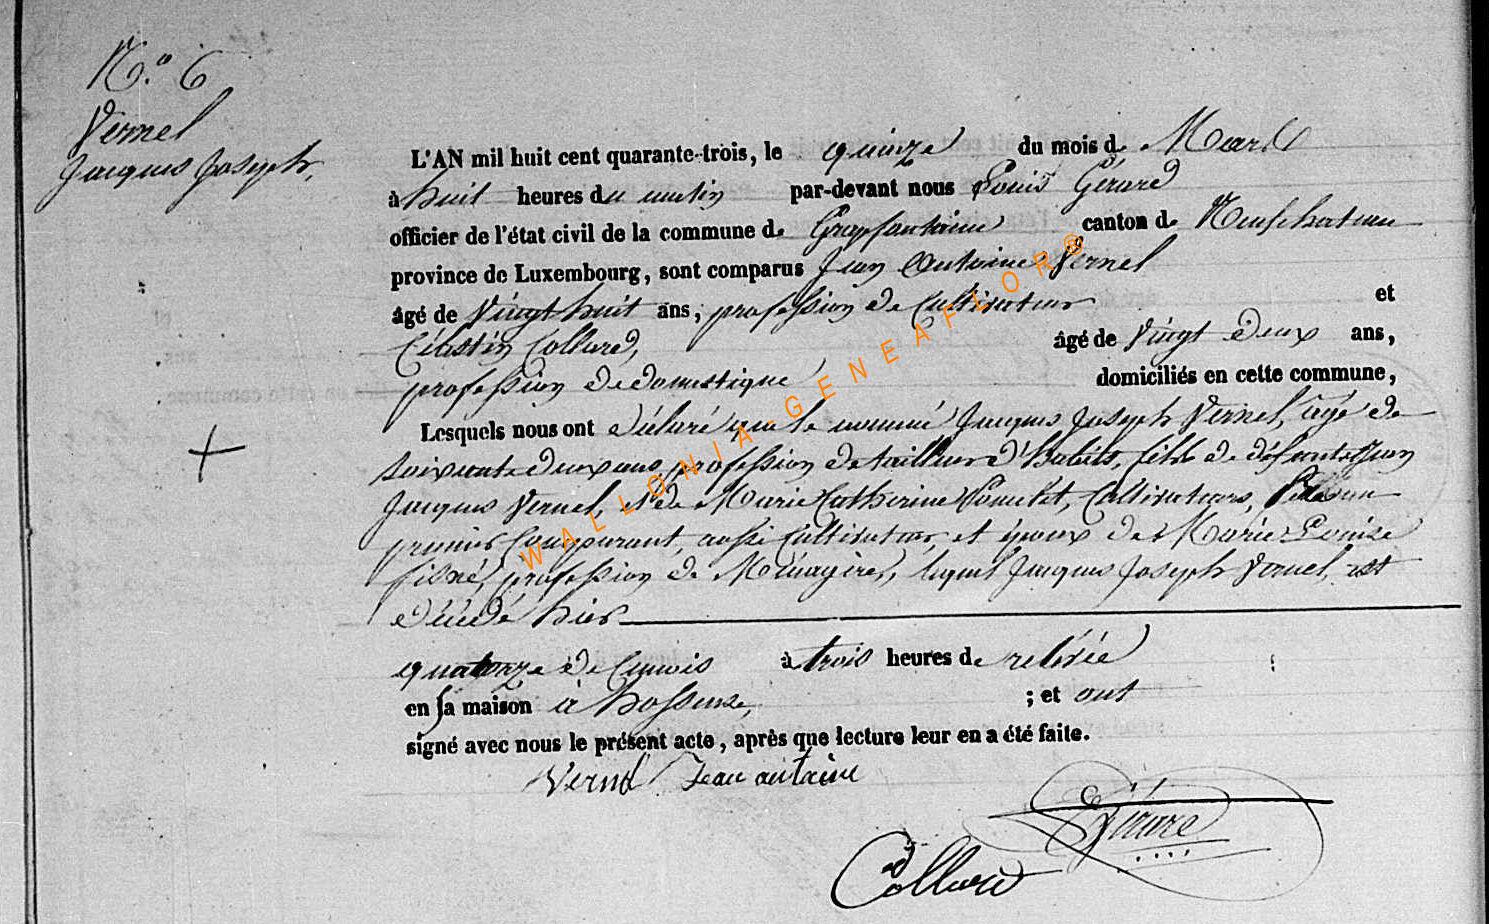 N.º 6
Vernel
Jacques Joseph,
L'AN mil huit cent quarante-trois, le quinze du mois de Mars
à huit heures du matin par-devant nous Louis Gérard
officier de l'état civil de la commune de Grapfontaine canton de Neufchateau
province de Luxembourg, sont comparus Jean Antoine Vernel
âgé de Vingt huit ans, profession de Cultivateur et
Célestin Collard, âgé de Vingt deux ans,
profession de domestique domiciliés en cette commune,
Lesquels nous ont déclaré que le nommé Jacques Joseph Vernel, âgé de
soixante deux ans profession de tailleur d'habits, fils de défunts Jean
Jacques Vernel, et de Marie Catherine Cultivateurs,
premier Comparant, aussi Cultivateur, et époux de Marie Louise
profession de Ménagère, lequel Jacques Joseph Vernel, est
décédé hier
quatorze de Ce mois à trois heures de relevée
en sa maison à hosseuse, ; et ont
signé avec nous le présent acte, après que lecture leur en a été faite.
Vernel Jean antoine
Gérard
Collard
WALLONIA-GENEAFLOR®